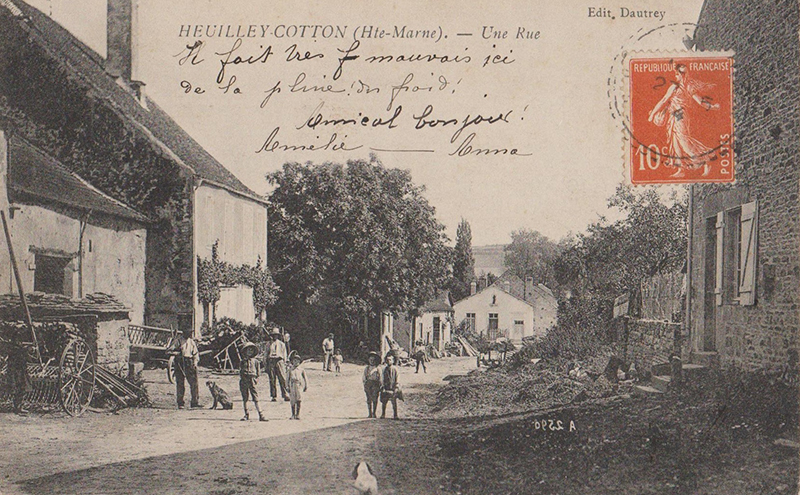 Edit. Dautrey
HEUILLEY-COTTON (Hte-Marne). — Une Rue
Il fait très f mauvais ici
de la pluie, du froid!
Amical bonjour!
Amélie — Anna
REPUBLIQUE FRANÇAISE
10c POSTES
A 2590